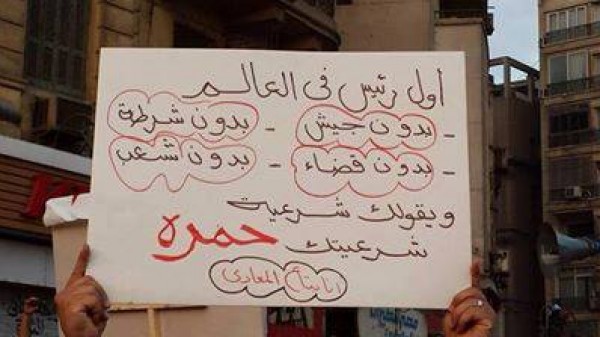 أول رئيس فى العالم
- بدون جيش - بدون شرطة
- بدون قضاء - بدون شعب
ويقولك شرعية
شرعيتك حمره
انا بتاع المعادى